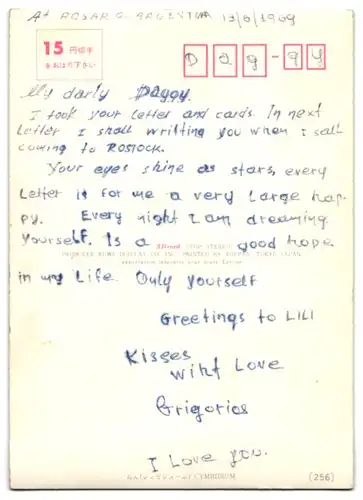 At ROSARIO ARGENTINA 13/6/1969
15 円切手
をおはり下さい
D a g - g y
My darly Daggy.
I took your letter and cards. In next
letter I shall writting you when I sall
coming to ROSTOCK.
Your eyes shine as stars, every
Letter is for me a very Large hap-
py. Every night I am dreaming
Yourself. Is a good hope
in my Life. Only yourself
Greetings to LILI
Kisses
wiht Love
Grigorios
I Love you.
CYMBIDIUM (256)